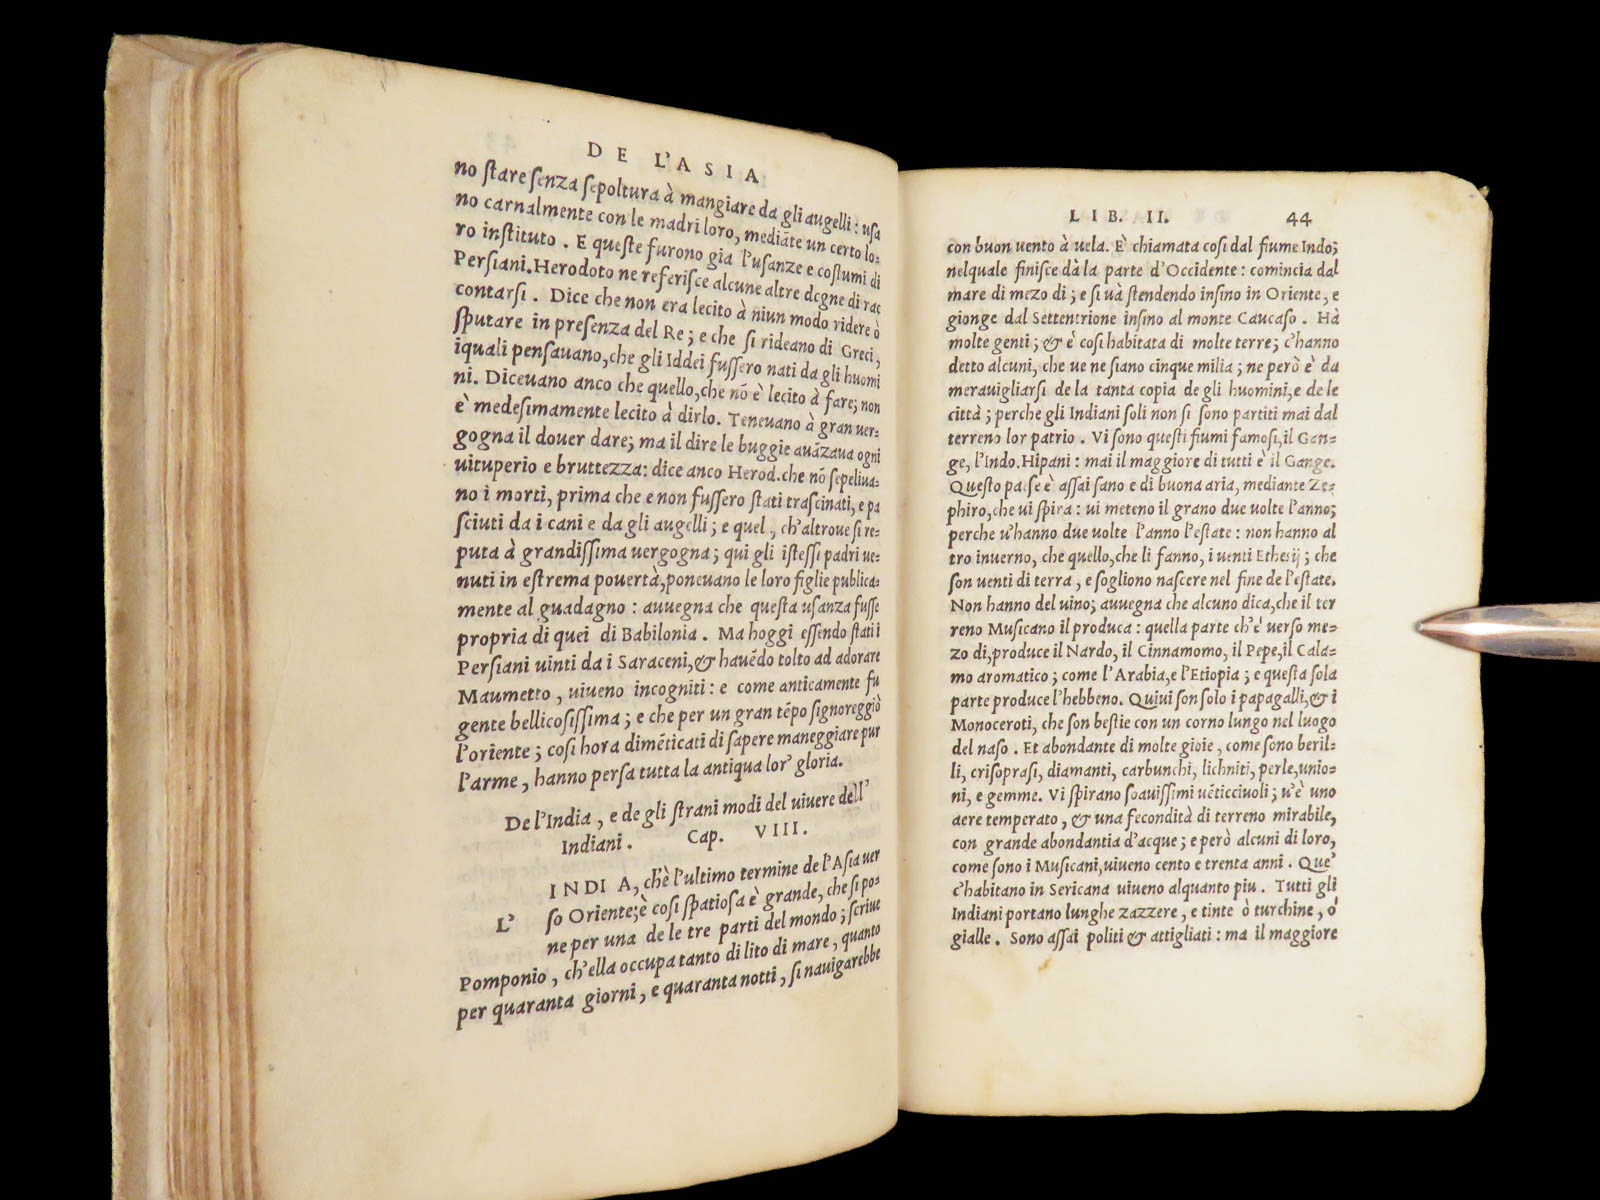 DE L'ASIA
no ſtare ſenza ſepoltura à mangiare da gli augelli: uſa
no carnalmente con le madri loro, mediãte un certo lo-
ro inſtituto. E queſte furono gia l'uſanze e coſtumi di
Perſiani. Herodoto ne referiſce alcune altre degne di rac
contarſi. Dice che non era lecito à niun modo ridere ò
ſputare in preſenza del Re; e che ſi rideano di Greci,
iquali penſauano, che gli Iddei fuſſero nati da gli huomi
ni. Diceuano anco che quello, che nõ è lecito à fare; non
è medeſimamente lecito à dirlo. Teneuano à gran uer-
gogna il douer dare; ma il dire le buggie auãzaua ogni
uituperio e bruttezza: dice anco Herod. che nõ ſepeliua-
no i morti, prima che e non fuſſero ſtati traſcinati, e pa
ſciuti da i cani e da gli augelli; e quel, ch'altroue ſi re-
puta à grandiſſima uergogna; qui gli iſteſſi padri ue-
nuti in eſtrema pouertà, poneuano le loro figlie publica-
mente al guadagno: auuegna che queſta uſanza fuſſe
propria di quei di Babilonia. Ma hoggi eſſendo ſtati i
Perſiani uinti da i Saraceni, & hauẽdo tolto ad adorare
Maumetto, uiueno incogniti: e come anticamente fu
gente bellicoſiſſima; e che per un gran tẽpo ſignoreggiò
l'oriente; coſi hora dimẽticati di ſapere maneggiare pur
l'arme, hanno perſa tutta la antiqua lor' gloria.
De l'India, e de gli ſtrani modi del uiuere dell'
Indiani. Cap. VIII.
L' INDIA, ch'è l'ultimo termine de l'Aſia uer
ſo Oriente; è coſi ſpatioſa è grande, che ſi po-
ne per una de le tre parti del mondo; ſcriue
Pomponio, ch'ella occupa tanto di lito di mare, quanto
per quaranta giorni, e quaranta notti, ſi nauigarebbe
LIB. II. 44
con buon uento à uela. È chiamata coſi dal fiume Indo;
nelquale finiſce dà la parte d'Occidente: comincia dal
mare di mezo di; e ſi uà ſtendendo inſino in Oriente, e
gionge dal Settentrione inſino al monte Caucaſo. Hà
molte genti; & è coſi habitata di molte terre; c'hanno
detto alcuni, che ue ne ſiano cinque milia; ne però è da
merauigliarſi de la tanta copia de gli huomini, e de le
città; perche gli Indiani ſoli non ſi ſono partiti mai dal
terreno lor patrio. Vi ſono queſti fiumi famoſi, il Gan-
ge, l'Indo. Hipani: mai il maggiore di tutti è il Gange.
Queſto paeſe è aſſai ſano e di buona aria, mediante Ze-
phiro, che ui ſpira: ui meteno il grano due uolte l'anno;
perche u'hanno due uolte l'anno l'eſtate: non hanno al
tro inuerno, che quello, che li fanno, i uenti Etheſij; che
ſon uenti di terra, e ſogliono naſcere nel fine de l'eſtate.
Non hanno del uino; auuegna che alcuno dica, che il ter
reno Muſicano il produca: quella parte ch'è uerſo me-
zo di, produce il Nardo, il Cinnamomo, il Pepe, il Cala-
mo aromatico; come l'Arabia, e l'Etiopia; e queſta ſola
parte produce l'hebbeno. Quiui ſon ſolo i papagalli, & i
Monoceroti, che ſon beſtie con un corno lungo nel luogo
del naſo. Et abondante di molte gioie, come ſono beril-
li, criſopraſi, diamanti, carbunchi, lichniti, perle, unio-
ni, e gemme. Vi ſpirano ſoauiſſimi uẽticciuoli; u'è uno
aere temperato, & una fecondità di terreno mirabile,
con grande abondantia d'acque; e però alcuni di loro,
come ſono i Muſicani, uiueno cento e trenta anni. Que'
c'habitano in Sericana uiueno alquanto piu. Tutti gli
Indiani portano lunghe zazzere, e tinte ò turchine, ò
gialle. Sono aſſai politi & attigliati: ma il maggiore